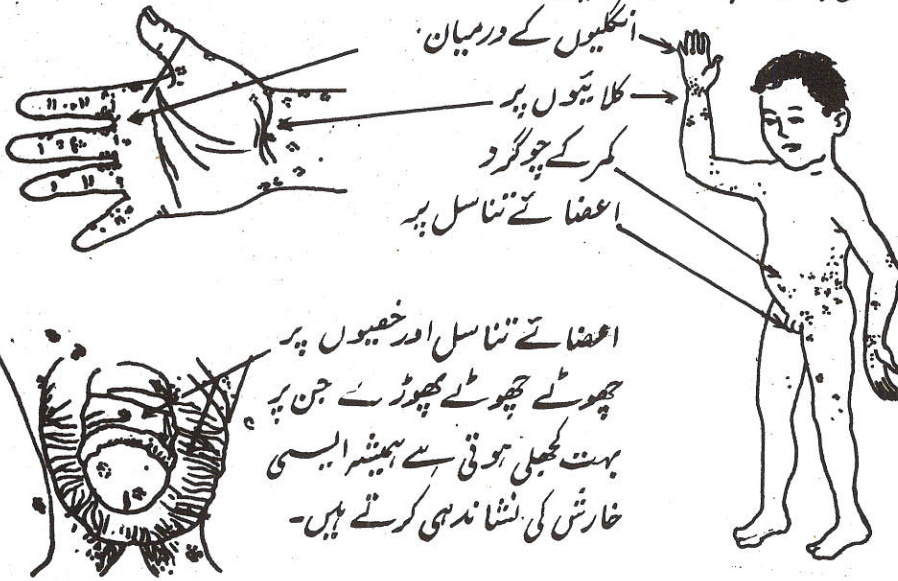 انگلیوں کے درمیان
کلائیوں پر
کمر کے چوگرد
اعضائے تناسل پر
اعضائے تناسل اور خصیوں پر
چھوٹے چھوٹے پھوڑے جن پر
بہت کھجلی ہوتی ہے ہمیشہ ایسی
خارش کی نشاندہی کرتے ہیں۔